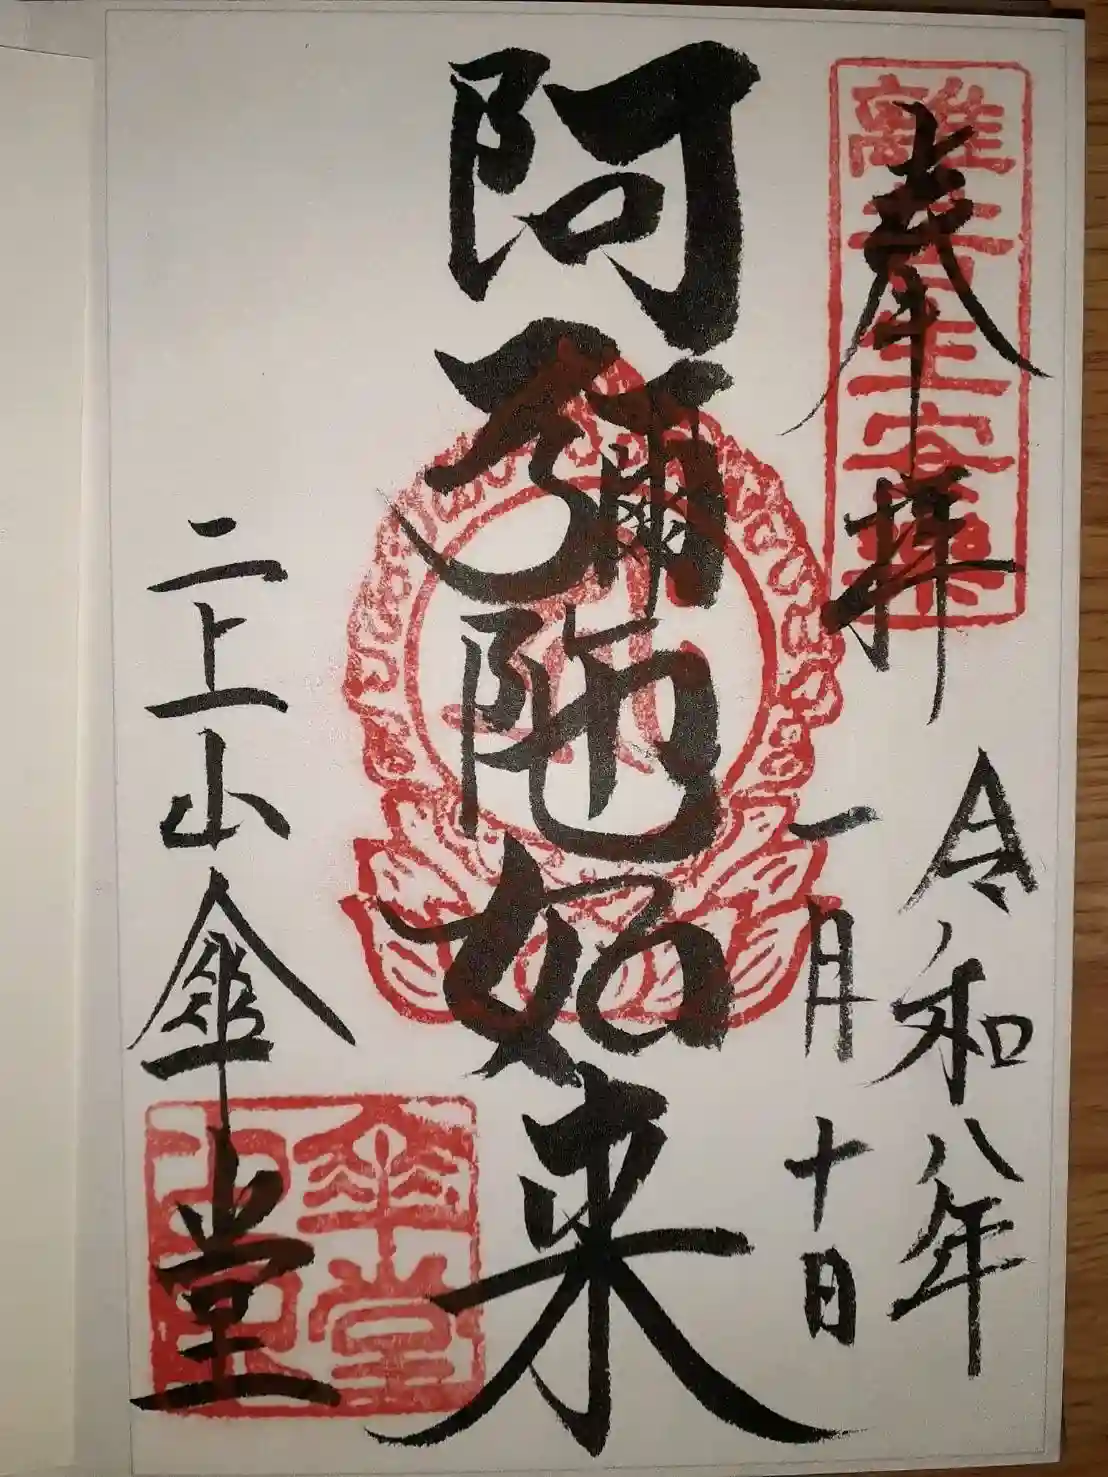 奉拝
令和八年
一月十日
阿彌陀如来
二上山傘堂
傘堂